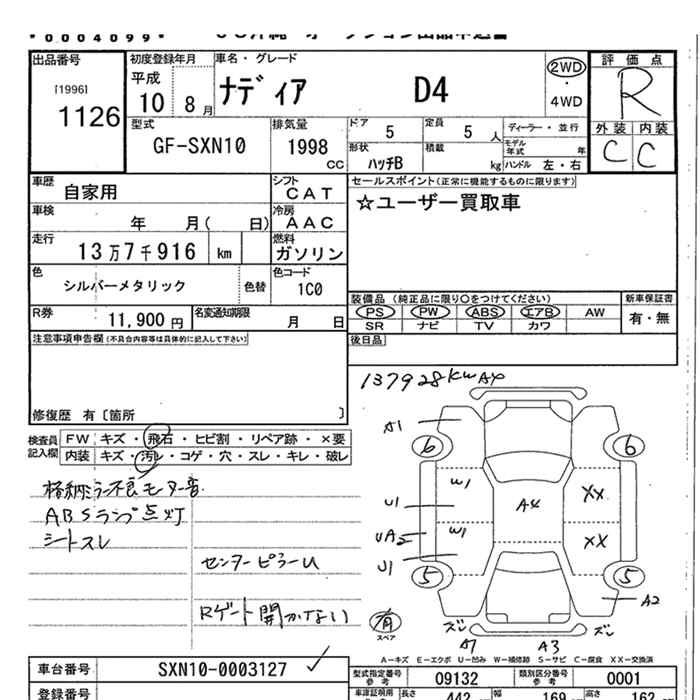 *0004099*
出品番号
[1996]
1126
初度登録年月
平成
10 8月
車名・グレード
ナディア D4
2WD
・
4WD
評価点
R
外装 内装
C C
型式
GF-SXN10
排気量
1998
CC
ドア
5
定員
5 人
ディーラー・並行
形状
ハッチB
積載
kg
モデル年式 年
ハンドル 左・右
車歴
自家用
シフト
CAT
車検
年 月( 日)
冷房
AAC
走行
13万7千916 km
燃料
ガソリン
色
シルバーメタリック
色替
色コード
1C0
R券
11,900 円
名変通知期限
月 日
セールスポイント(正常に機能するものに限ります)
☆ユーザー買取車
装備品 (純正品に限り○をつけてください)
PS PW ABS エアB AW
SR ナビ TV カワ
新車保証書
有・無
後日品
注意事項申告欄(不具合内容等は具体的に記入して下さい)
修復歴 有〔箇所 〕
検査員
記入欄
FW キズ・飛石・ヒビ割・リペア跡・×要
内装 キズ・汚レ・コゲ・穴・スレ・キレ・破レ
格納ミラー不良モーター音
ABSランプ点灯
シートスレ
センターピラーU
Rゲート開かない
A1
6
6
W1
XX
U1
A4
W1
XX
UA2
U1
5
5
A2
有
スペア
ズレ
ズレ
A7
A3
A−キズ E−エクボ U−凹み W−補修跡 S−サビ C−腐食 XX−交換済
車台番号
SXN10-0003127
登録番号
型式指定番号
参考
09132
類別区分番号
参考
0001
車庫証明用
参考
長さ
442
幅
169
高さ
162